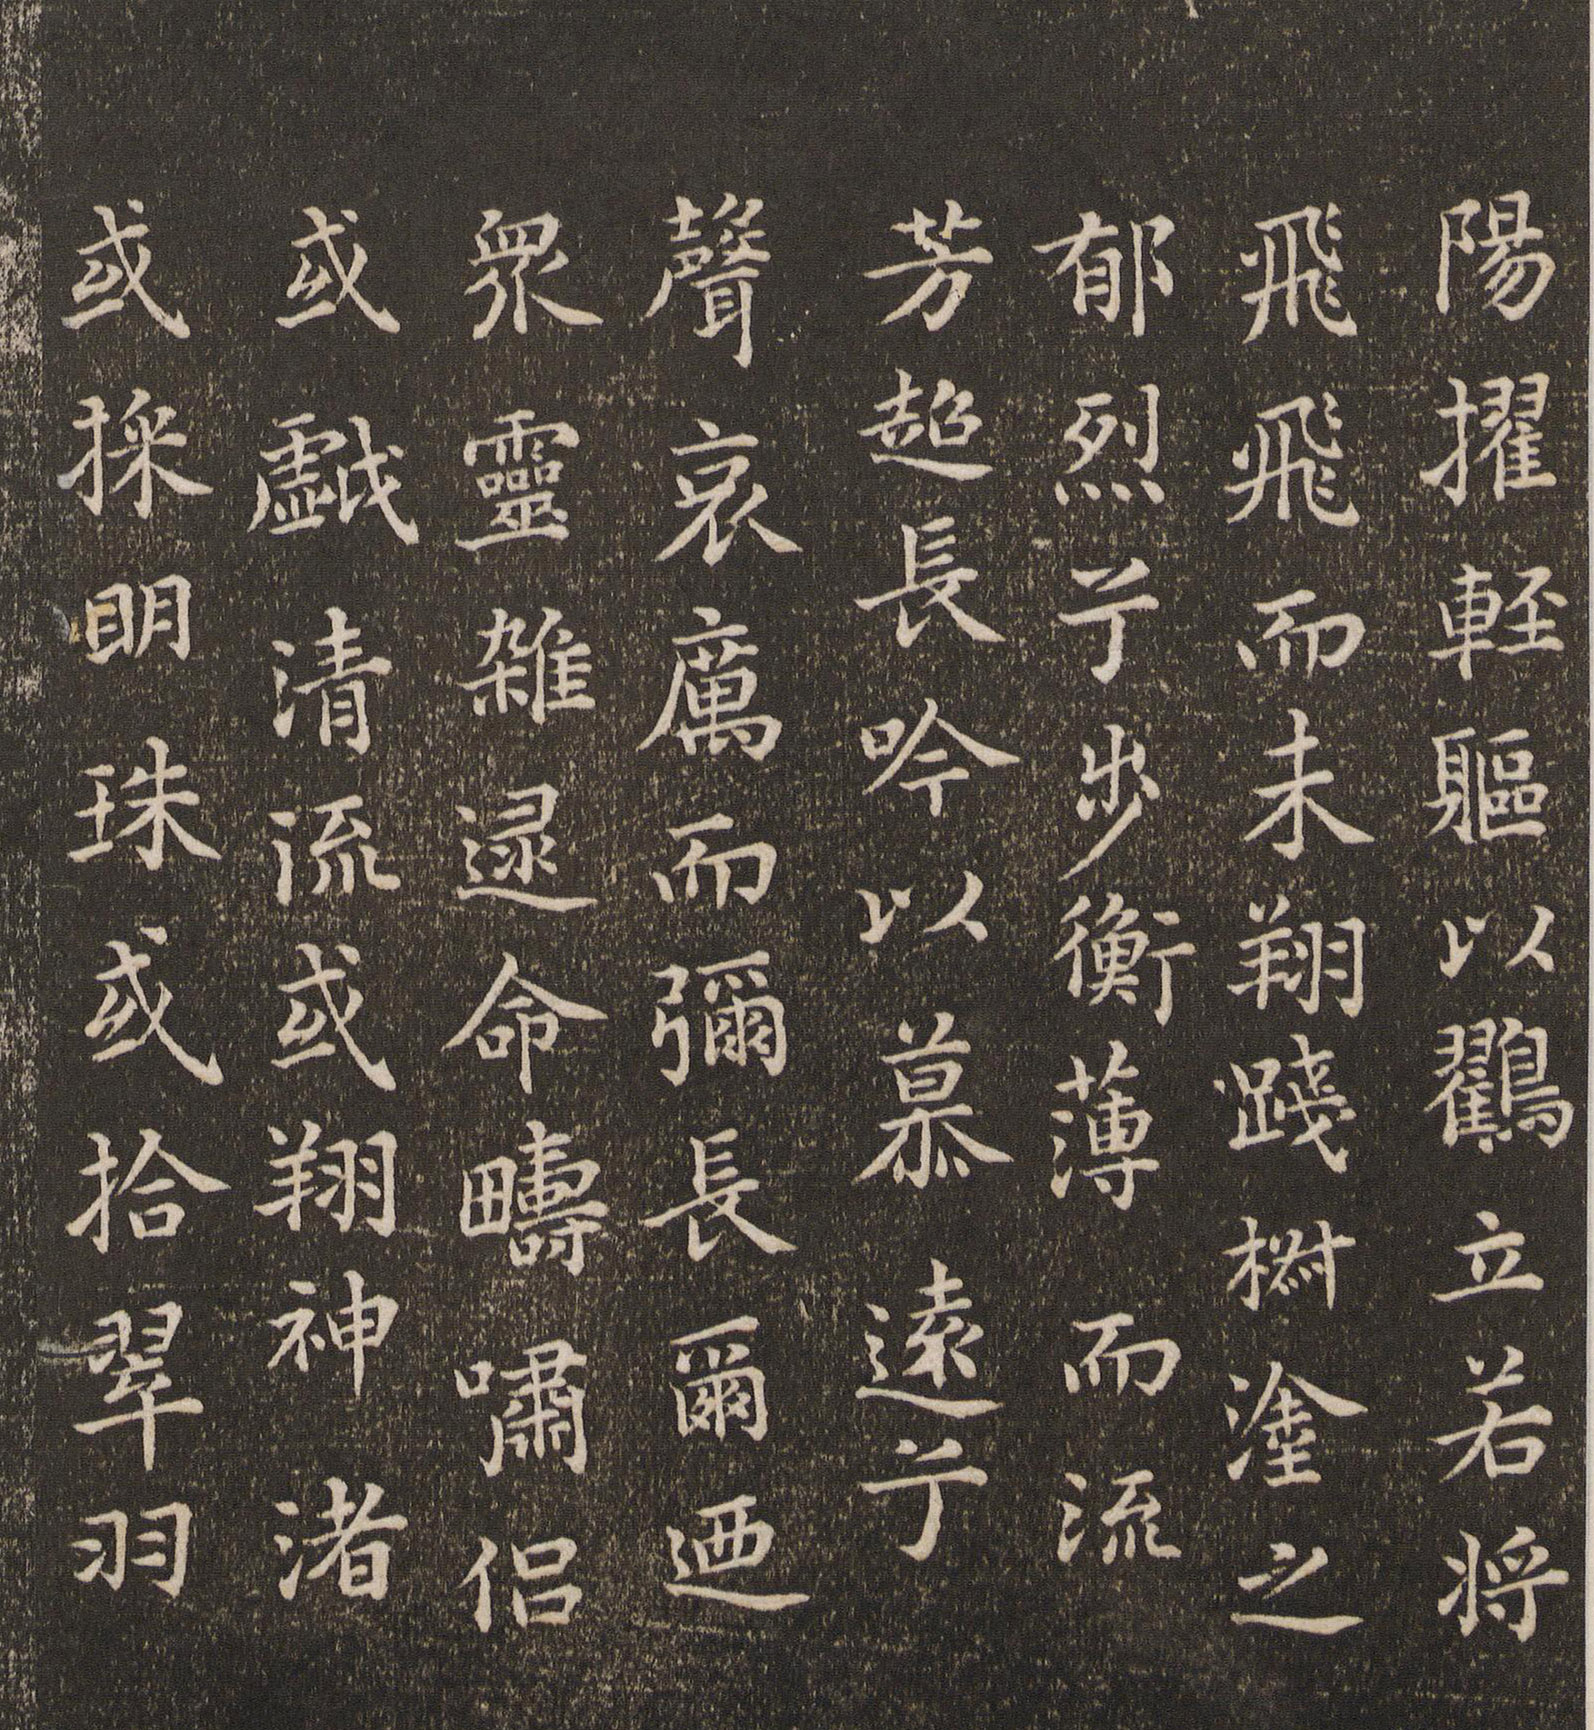 陽擢輕軀以鸖立若将
飛飛而未翔踐椒塗之
郁烈兮步衡薄而流
芳超長吟以慕遠兮
聲哀厲而彌長爾迺
衆靈雜遝命疇嘯侣
或戲清流或翔神渚
或採明珠或拾翠羽